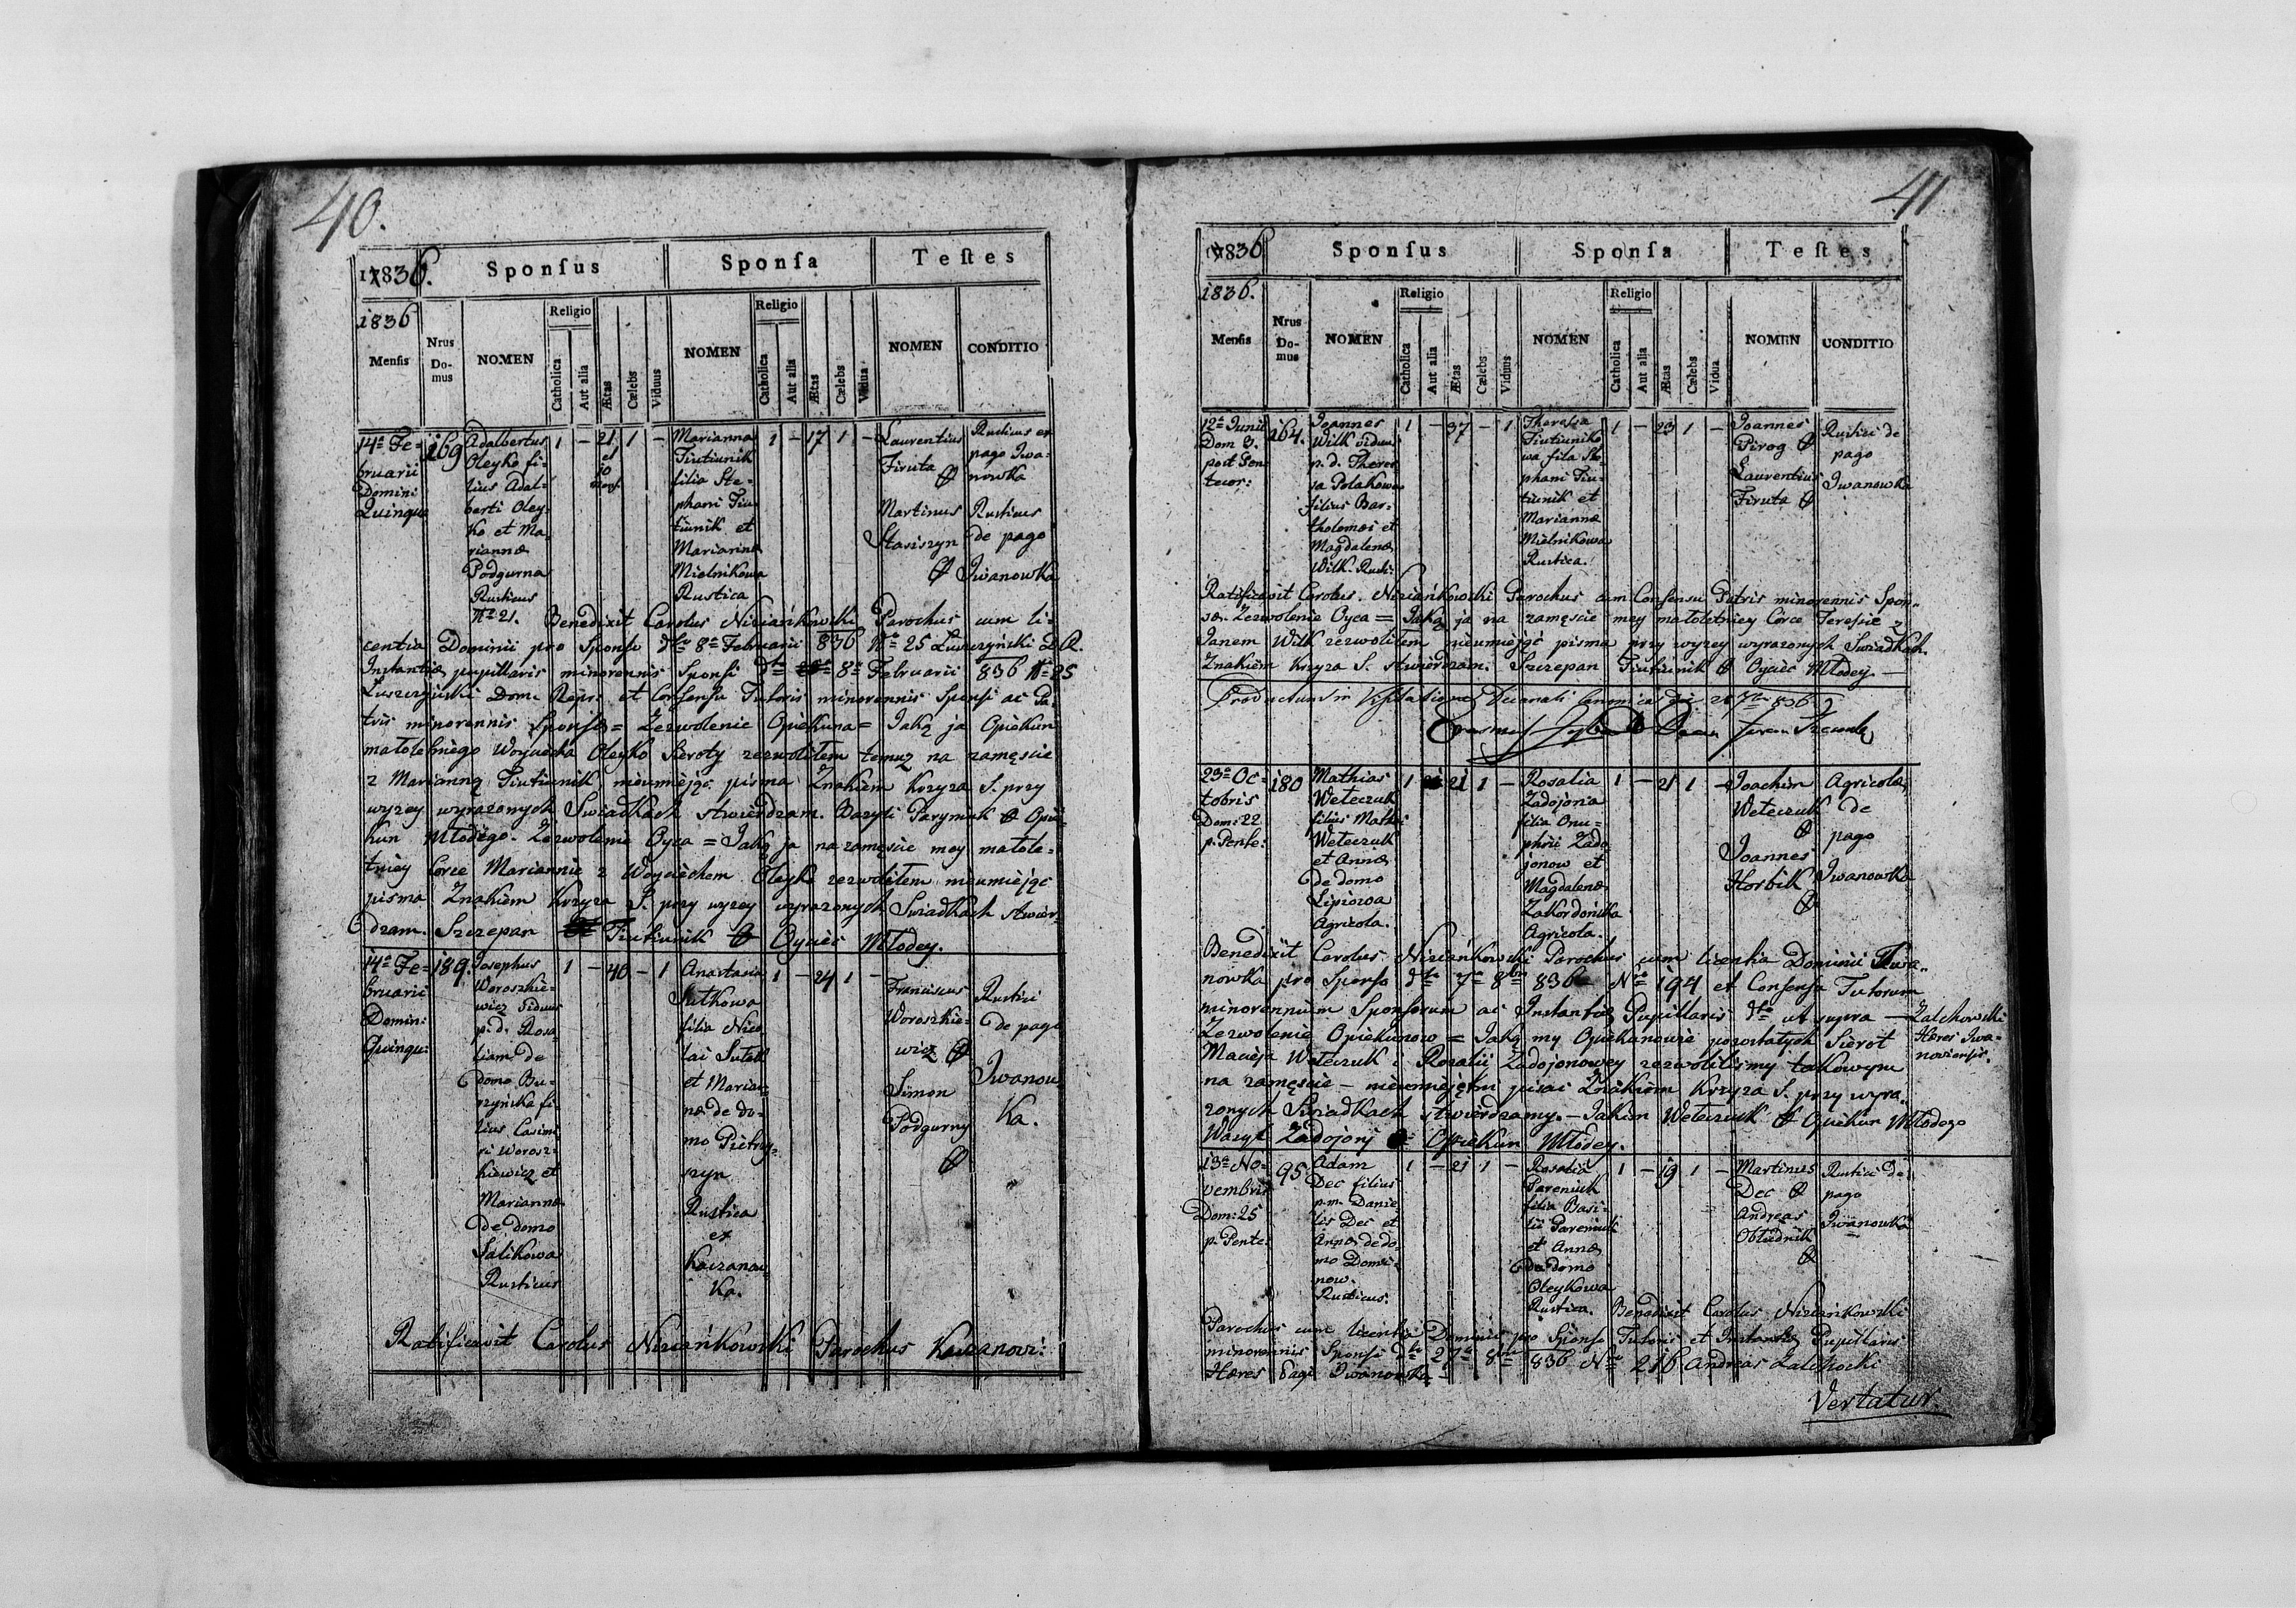 40.
1836.
Sponſus
Sponſa
Teſtes
1836
Menſis
Nrus
Do-
mus
NOMEN
Religio
Catholica
Aut alia
Ætas
Cælebs
Viduus
NOMEN
Religio
Catholica
Aut alia
Ætas
Cælebs
Vidua
NOMEN
CONDITIO
14a Fe=
bruarii
Domini:
Quinqu:
169
Adalbertus
Oleyko fi-
lius Adal-
berti Oley-
ko et Ma-
riannæ
Podgurna
Rusticus
No 21.
1 - 21 1 -
et
10
mens.
Marianna
Tiutiunik
filia Ste-
phani Tiu-
tiunik et
Mariannæ
Mielnikowa
Rustica
1 - 17 1 -
Laurentius
Firuta
Martinus
Stasiszyn
Rusticus ex
pago Iwa-
nowka
Rusticus
de pago
Iwanowka
Benedixit Carolus Niziańkowski Parochus cum li-
centia Dominii pro Sponso dto 8a Februarii 836 No 25 Luszczyński D.R.
Instantiæ pupillaris minorennis Sponsi dto 8a Februarii 836 No 25
Luszczyński Dom. Repr. et Consensu Tutoris minorennis Sponsi ac Pa-
tris minorennis Sponsæ = Zezwolenie Opiekuna = Jako ja Opiekun
małoletniego Woyciecha Oleyko Sieroty zezwoliłem temuż na zamęście
z Marianną Tiutiunik nieumiejąc pisma Znakiem Krzyża S. przy
wyżey wyrażonych Swiadkach stwierdzam. Bazyli Parymiuk Opie-
kun Młodego. Zezwolenie Oyca = Jako ja na zamęście mey małole-
tniey Corce Mariannie z Woyciechem Oleyko zezwoliłem nieumiejąc
pisma Znakiem Krzyża S. przy wyżey wyrażonych Swiadkach stwier-
dzam. Szczepan Tiutiunik Oyciec Młodey.
14a Fe=
bruarii
Domin:
Quinqu:
189.
Josephus
Woroszkie-
wicz Viduus
p. d. Rosa-
liam de
domo Bu-
rzyńska fi-
lius Casimi-
ri Worosz-
kiewicz et
Mariannæ
de domo
Salikowa
Rusticus
1 - 40 - 1
Anastasia
Sutkowa
filia Nico-
lai Sutek
et Marian-
næ de do-
mo Pietry-
szyn
Rustica
ex
Kaczanow-
ka.
1 - 24 1 -
Franciscus
Woroszkie-
wicz
Simon
Podgurny
Rustici
de pago
Iwanow
ka.
Ratificavit Carolus Niziańkowski Parochus Kaczanovi:
41.
1836
Sponſus
Sponſa
Teſtes
1836.
Menſis
Nrus
Do-
mus
NOMEN
Religio
Catholica
Aut alia
Ætas
Cælebs
Viduus
NOMEN
Religio
Catholica
Aut alia
Ætas
Cælebs
Vidua
NOMEN
CONDITIO
12a Junii
Dom 3.
post Pen-
tecos:
164.
Joannes
Wilk viduus
p. d. There-
sa Polakowa
filius Bar-
tholomæi et
Magdalenæ
Wilk. Rusti:
1 - 37 - 1
Theresia
Tiutiuniko
wa filia Ste-
phani Tiu-
tiunik et
Mariannæ
Mielnikowa
Rustica.
1 - 23 1 -
Joannes
Pirog
Laurentius
Firuta
Rustici de
pago
Iwanowka
Ratificavit Carolus Niziańkowski Parochus cum Consensu Patris minorennis Spon-
sæ. Zezwolenie Oyca = Jako ja na zamęście mey małoletniey Córce Teresie z
Janem Wilk zezwoliłem nieumiejąc pisma przy wyżey wyrażonych Swiadkach
Znakiem Krzyża S. stwierdzam. Szczepan Tiutiunik Oyciec Młodey. —
Productum in Visitatione Decanali Canonica die 28 7bris 836
23a Oc-
tobris
Dom: 22
p. Pente:
180
Mathias
Weteczuk
filius Mathei
Weteczuk
et Annæ
de domo
Lipiowa
Agricola.
1 21 1 -
Rosalia
Zadojona
filia Onu-
phrii Zado
jonow et
Magdalenæ
Zakordońska
Agricola.
1 - 21 1 -
Joachim
Weteczuk
Joannes
Horbik
Agricolæ
de
pago
Iwanowka
Benedixit Carolus Niziańkowski Parochus cum licentia Dominii Iwa-
nowka pro Sponso dto 7a 8bris 836 Nro 194 et Consensu Tutorum
minorennium Sponsorum ac Instantiæ Pupillaris dto ut supra — Zalchowski
Hæres Iwa-
noviensis.
Zezwolenie Opiekunow = Jako my Opiekunowie pozostałych Sierot
Macieja Weteczuk i Rozalii Zadojonowey zezwoliliśmy takowym
na zamęście — nieumiejętni pisać Znakiem Krzyża S. przy wyra-
żonych Swiadkach stwierdzamy. — Jakim Weteczuk Opiekun Młodego
Wasyl Zadojony Opiekun Młodey.
13a No-
vembris
Dom: 25
p. Pente:
95
Adam
Dec filius
p.m. Danie-
lis Dec et
Annæ de do-
mo Domi-
now.
Rusticus.
1 - 21 1 -
Rosalia
Pareniuk
filia Basi-
lii Pareniuk
et Annæ
de domo
Oleykowa
Rustica.
1 - 19 1 -
Martinus
Dec
Andreas
Obłudnik
Rustici de
pago
Iwanowka
Benedixit Carolus Niziańkowski
Parochus cum licentia Dominii pro Sponso Tutoris et Instantiæ Pupillaris
minorennis Sponsi dto 27a 8bris 836 Nro 216 Andreas Zalchocki
Hæres Pagi Iwanowka —
Vertatur.